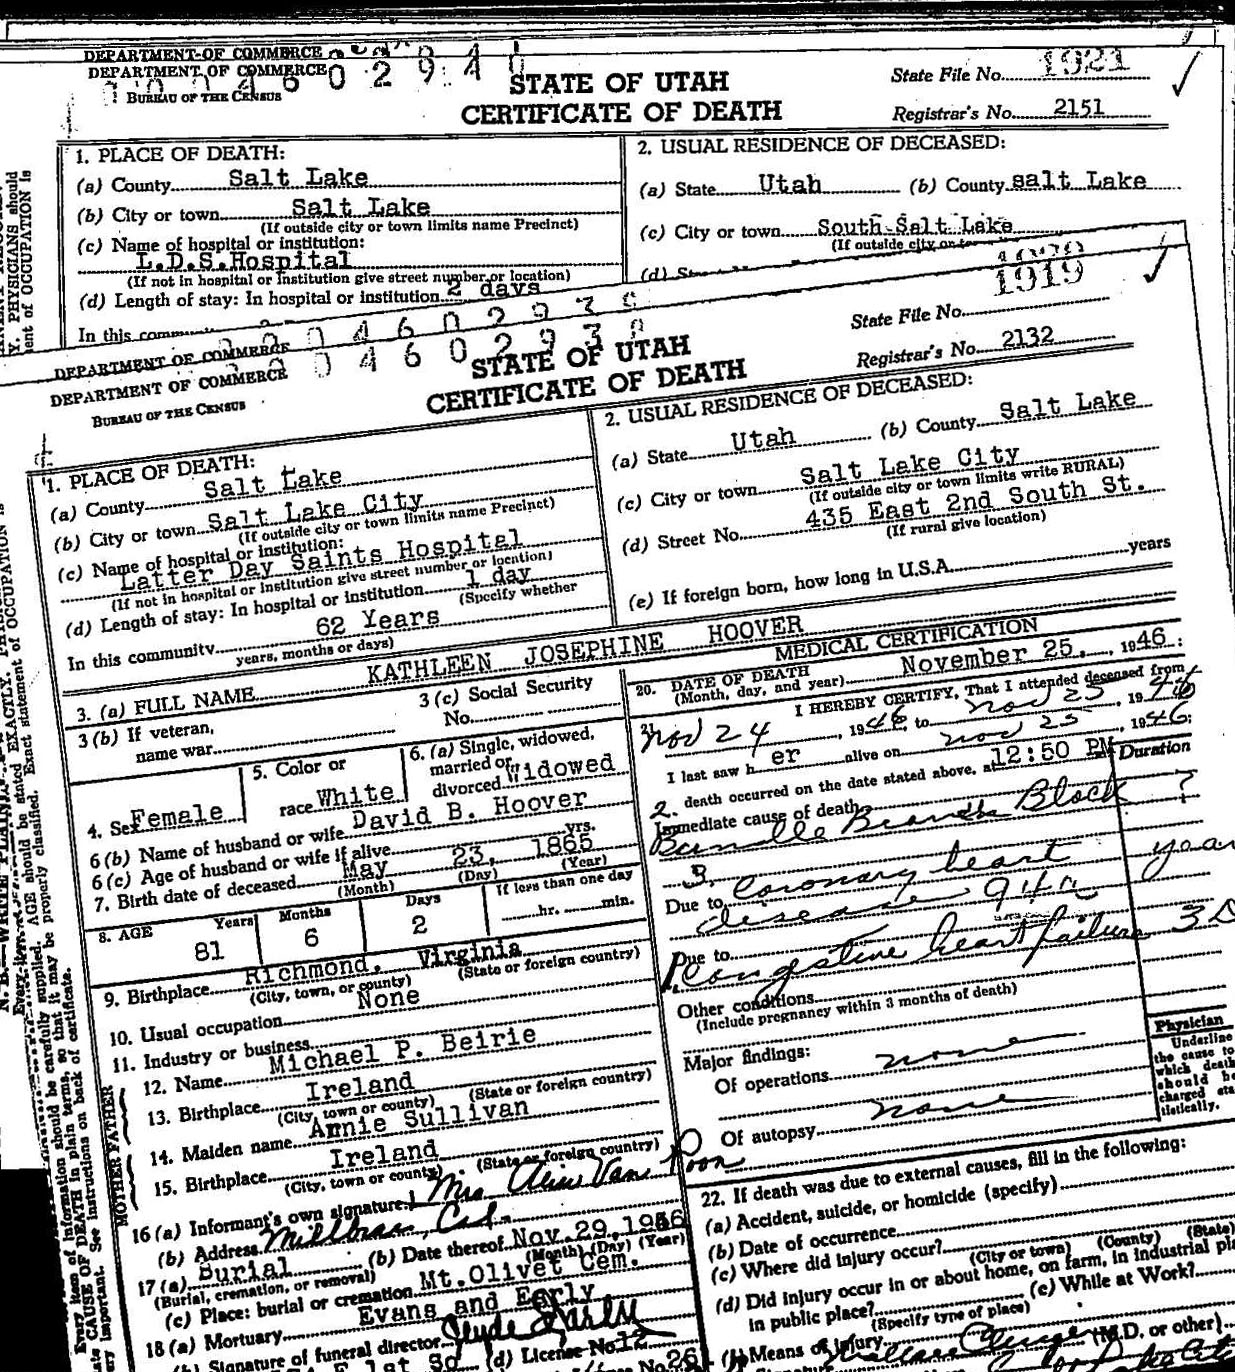 DEPARTMENT OF COMMERCE
DEPARTMENT OF COMMERCE
BUREAU OF THE CENSUS
STATE OF UTAH
CERTIFICATE OF DEATH
State File No. 1921
Registrar's No. 2151
1. PLACE OF DEATH:
(a) County Salt Lake
(b) City or town Salt Lake
(If outside city or town limits name Precinct)
(c) Name of hospital or institution:
L.D.S.Hospital
(If not in hospital or institution give street number or location)
(d) Length of stay: In hospital or institution 2 days
2. USUAL RESIDENCE OF DECEASED:
(a) State Utah (b) County salt Lake
(c) City or town South Salt Lake
DEPARTMENT OF COMMERCE
DEPARTMENT OF COMMERCE
BUREAU OF THE CENSUS
STATE OF UTAH
CERTIFICATE OF DEATH
State File No. 1919
Registrar's No. 2132
1. PLACE OF DEATH:
(a) County Salt Lake
(b) City or town Salt Lake City
(If outside city or town limits name Precinct)
(c) Name of hospital or institution:
Latter Day Saints Hospital
(If not in hospital or institution give street number or location)
(d) Length of stay: In hospital or institution 1 day
(Specify whether
In this community 62 Years
years, months or days)
2. USUAL RESIDENCE OF DECEASED:
(a) State Utah (b) County Salt Lake
(c) City or town Salt Lake City
(If outside city or town limits write RURAL)
(d) Street No. 435 East 2nd South St.
(If rural give location)
(e) If foreign born, how long in U.S.A. years
3. (a) FULL NAME KATHLEEN JOSEPHINE HOOVER
3 (b) If veteran,
name war
3 (c) Social Security
No.
4. Sex Female
5. Color or
race White
6. (a) Single, widowed,
married or
divorced Widowed
6 (b) Name of husband or wife David B. Hoover
6 (c) Age of husband or wife if alive yrs.
7. Birth date of deceased May 23, 1865
(Month) (Day) (Year)
8. AGE Years Months Days If less than one day
81 6 2 hr. min.
9. Birthplace Richmond, Virginia
(City, town, or county) (State or foreign country)
10. Usual occupation None
11. Industry or business
FATHER
12. Name Michael P. Beirie
13. Birthplace Ireland
(City, town or county) (State or foreign country)
MOTHER
14. Maiden name Annie Sullivan
15. Birthplace Ireland
(City, town or county) (State or foreign country)
16 (a) Informant's own signature Mrs Van Roon
(b) Address Millbrae, Cal.
17 (a) Burial (b) Date thereof Nov.29,1946
(Burial, cremation, or removal) (Month) (Day) (Year)
(c) Place: burial or cremation Mt.Olivet Cem.
18 (a) Mortuary Evans and Early
(b) Signature of funeral director Clyde Early
(d) License No. 12
MEDICAL CERTIFICATION
20. DATE OF DEATH
(Month, day, and year) November 25, 1946
21. I HEREBY CERTIFY, That I attended deceased from
Nov 24, 1946 to Nov 25, 1946
I last saw h er alive on Nov 25, 1946;
death occurred on the date stated above, at 12:50 PM
Immediate cause of death Duration
2. Bundle Branch Block ?
3. Due to Coronary heart years
disease 94a
Due to
1. Congestive heart failure 3 D
Other conditions
(Include pregnancy within 3 months of death)
Major findings:
Of operations none
Of autopsy none
Physician
Underline
the cause to
which death
should be
charged sta
tistically.
22. If death was due to external causes, fill in the following:
(a) Accident, suicide, or homicide (specify)
(b) Date of occurrence
(c) Where did injury occur?
(City or town) (County) (State)
(d) Did injury occur in or about home, on farm, in industrial pla
in public place? (e) While at Work?
(Specify type of place)
Means of injury
(M.D. or other)